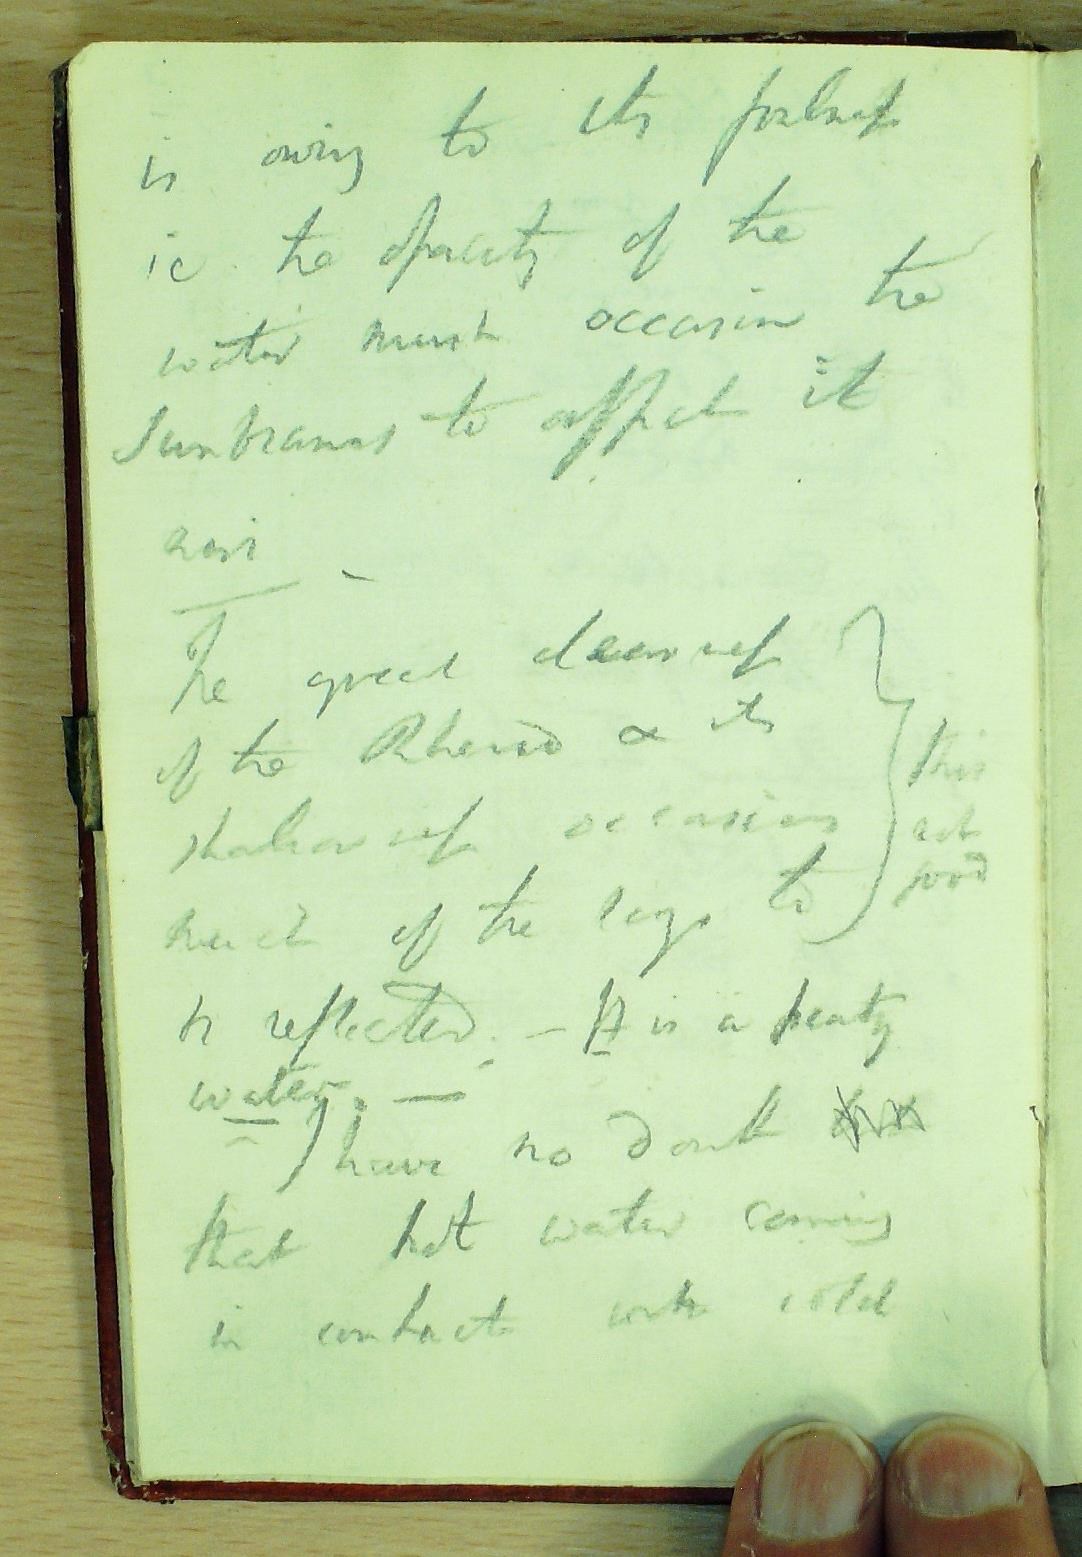 is owing to its foulness
ie the opacity of the
water must occasion the
Sunbeams to affect it
The great clearness
of the & its
shallowness occasions
much of the rays to
be reflected. – It is a peaty
water. —
I have no doubt
that hot water coming
in contact with cold
this
not
good